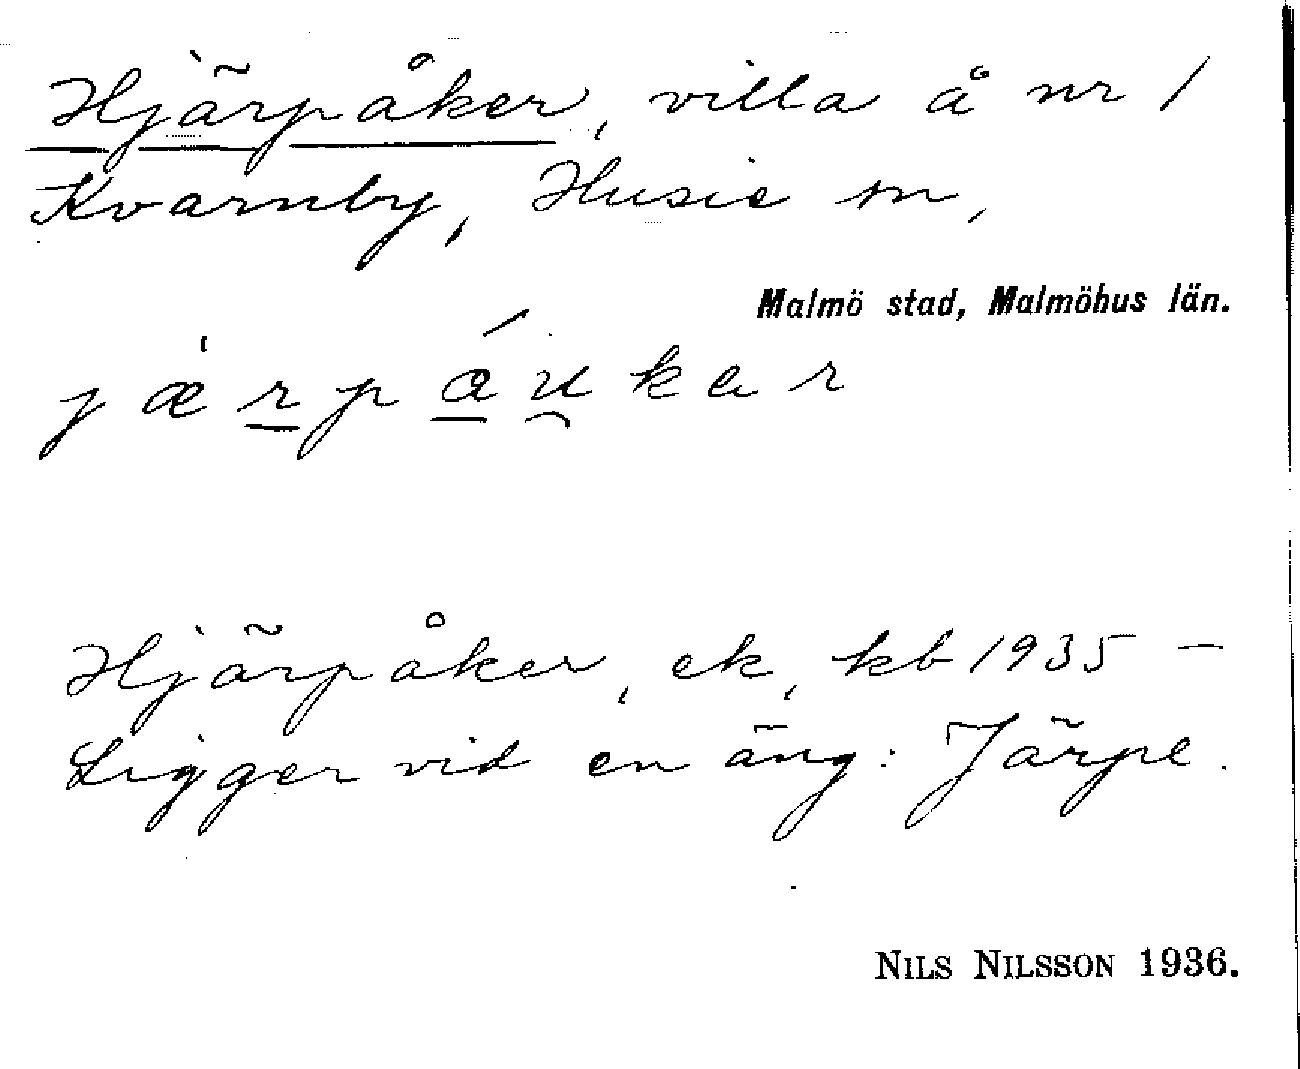 Hjärpåker, villa å nr 1
Kvarnby, Husie sn,
Malmö stad, Malmöhus län.
jæ̍rpáu̯kar
Hjärpåker, ek, kb 1935 –
Ligger vid en äng: Järpe.
NILS NILSSON 1936.